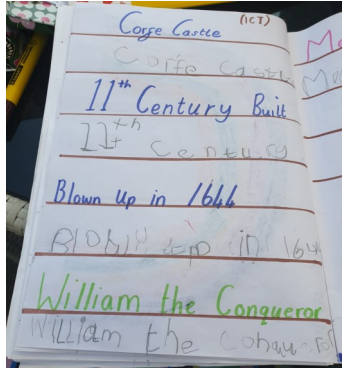 Corfe Castle (ICT)
Corfe Castle
11th Century Built
11th Century
Blown Up in 1644
Blown up in 164
William the Conqueror
William the